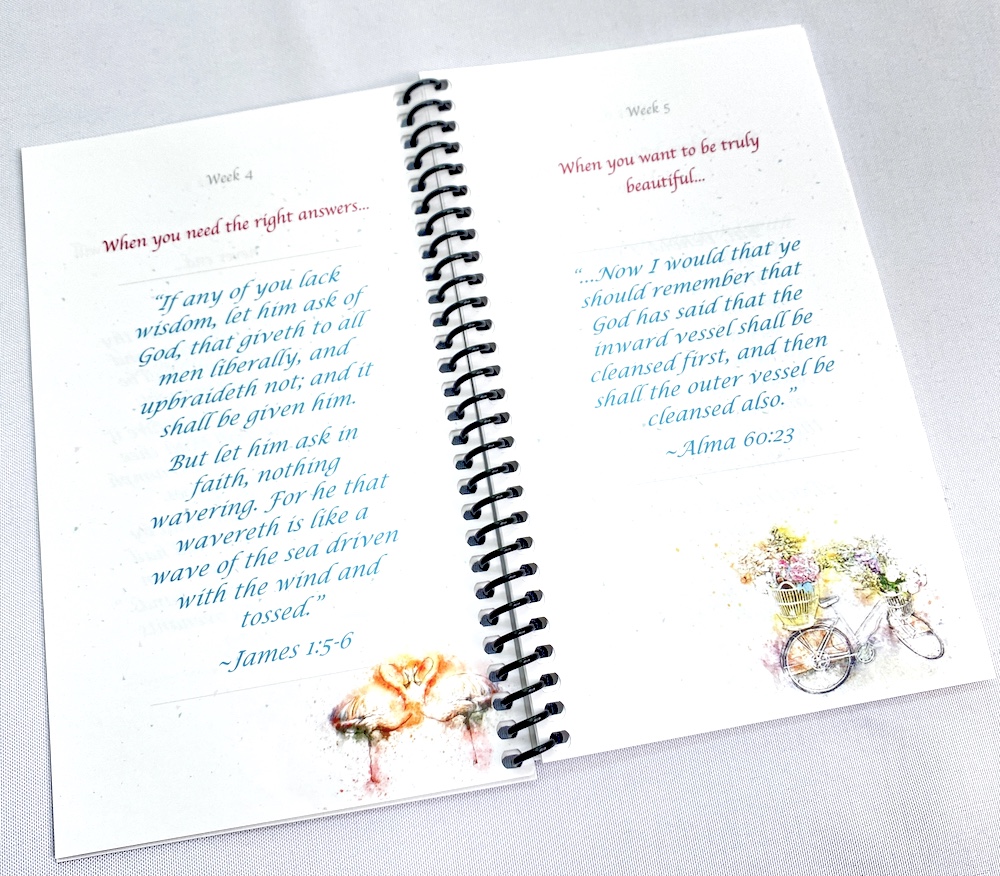 Week 4
When you need the right answers...
"If any of you lack
wisdom, let him ask of
God, that giveth to all
men liberally, and
upbraideth not; and it
shall be given him.
But let him ask in
faith, nothing
wavering. For he that
wavereth is like a
wave of the sea driven
with the wind and
tossed."
~James 1:5-6
Week 5
When you want to be truly
beautiful...
"...Now I would that ye
should remember that
God has said that the
inward vessel shall be
cleansed first, and then
shall the outer vessel be
cleansed also."
~Alma 60:23